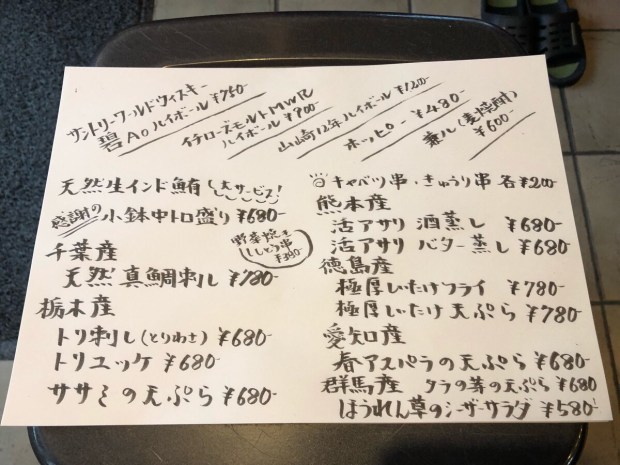 サントリーワールドウィスキー
碧Aoハイボール ¥750-
イチローズモルトMWR
ハイボール ¥900
山崎12年ハイボール ¥1200-
ホッピー ¥480-
兼八(麦焼酎)
¥600-
天然生インド鮪 大サービス!
感謝の小鉢中トロ盛り ¥680-
野菜焼き
ししとう串
¥390-
千葉産
天然真鯛刺し ¥780-
栃木産
トリ刺し(とりわさ) ¥680-
トリユッケ ¥680-
ササミの天ぷら ¥680-
キャベツ串・きゅうり串 各¥200-
熊本産
活アサリ 酒蒸し ¥680-
活アサリ バター蒸し ¥680-
徳島産
極厚しいたけフライ ¥780-
極厚しいたけ天ぷら ¥780-
愛知産
春アスパラの天ぷら ¥680-
群馬産 タラの芽の天ぷら ¥680
ほうれん草のシーザーサラダ ¥580-